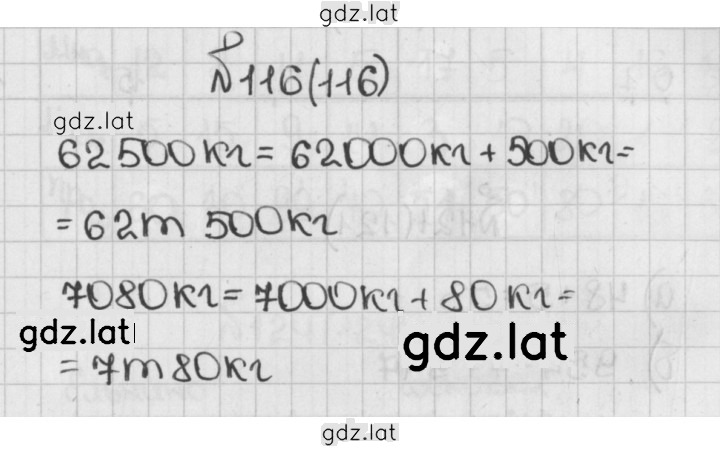 gdz.lat
№116(116)
gdz.lat
62500кг = 62000кг + 500кг =
= 62т 500кг
7080кг = 7000кг + 80кг =
gdz.lat
gdz.lat
= 7т 80кг
gdz.lat